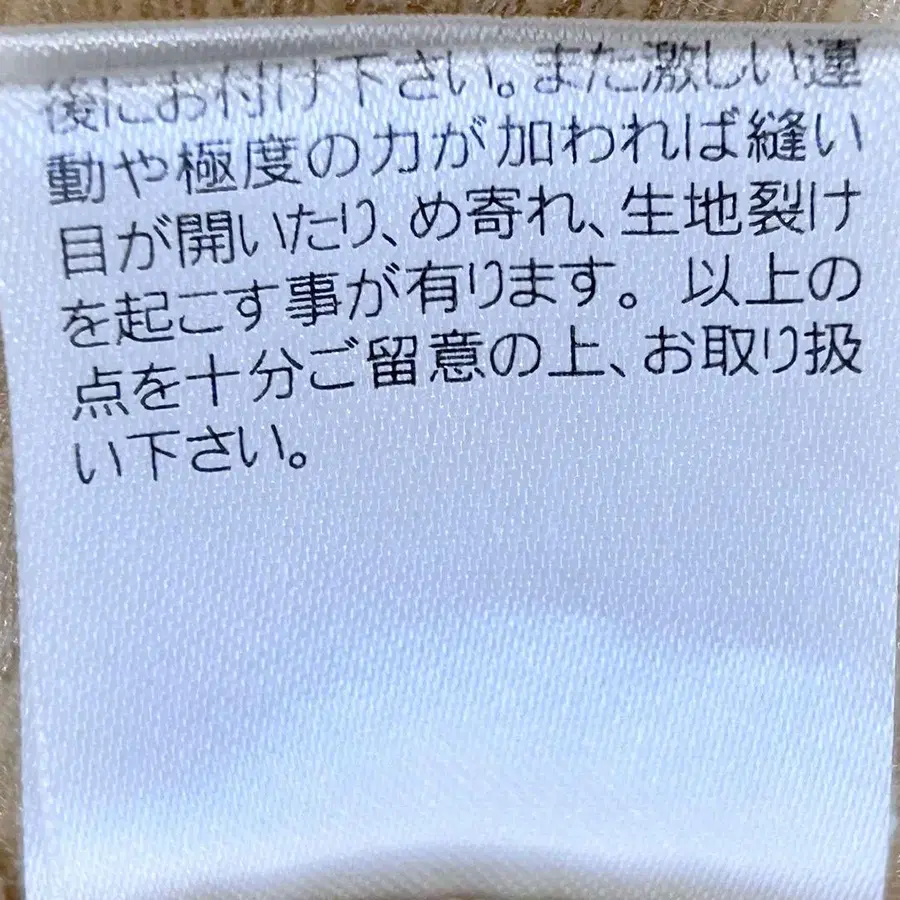 後にお付け下さい。また激しい運
動や極度の力が加われば縫い
目が開いたり、め寄れ、生地裂け
を起こす事が有ります。以上の
点を十分ご留意の上、お取り扱
い下さい。